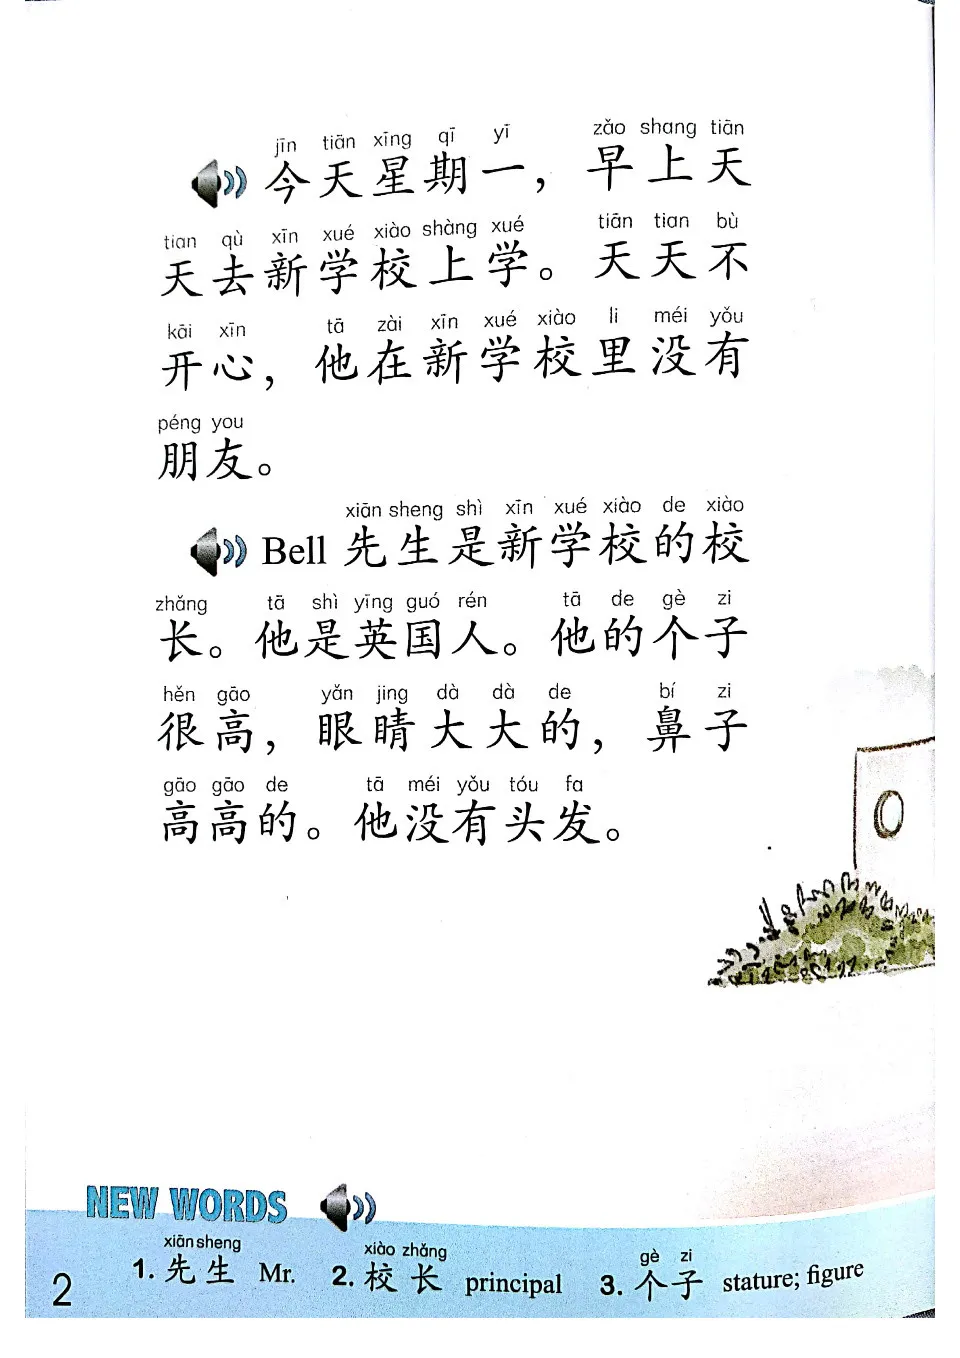 jīn tiān xīng qī yī zǎo shang tiān
今天星期一，早上天
tian qù xīn xué xiào shàng xué tiān tian bù
天去新学校上学。天天不
kāi xīn tā zài xīn xué xiào li méi yǒu
开心，他在新学校里没有
péng you
朋友。
xiān sheng shì xīn xué xiào de xiào
Bell 先生是新学校的校
zhǎng tā shì yīng guó rén tā de gè zi
长。他是英国人。他的个子
hěn gāo yǎn jing dà dà de bí zi
很高，眼睛大大的，鼻子
gāo gāo de tā méi yǒu tóu fa
高高的。他没有头发。
NEW WORDS
xiān sheng xiào zhǎng gè zi
1. 先生 Mr. 2. 校长 principal 3. 个子 stature; figure
2